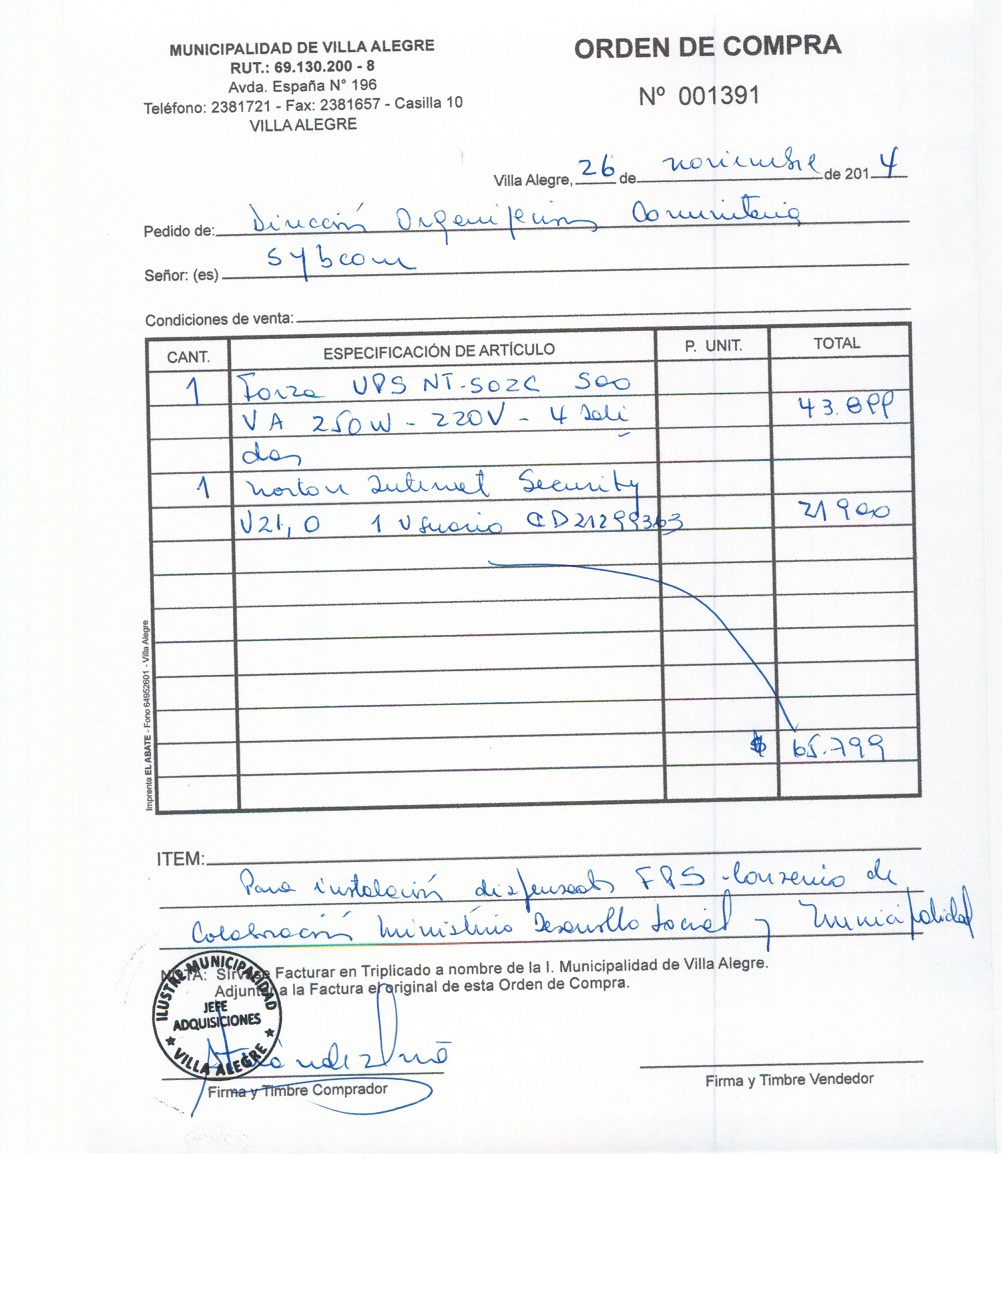 MUNICIPALIDAD DE VILLA ALEGRE
RUT.: 69.130.200 - 8
Avda. España N° 196
Teléfono: 2381721 - Fax: 2381657 - Casilla 10
VILLA ALEGRE
ORDEN DE COMPRA
Nº 001391
Villa Alegre, 26 de noviembre de 2014
Pedido de: Dirección Organización Comunitaria
Señor: (es) Sybcom
Condiciones de venta:
CANT. ESPECIFICACIÓN DE ARTÍCULO P. UNIT. TOTAL
1 Forza UPS NT-502C 500
VA 250W - 220V - 4 Sali 43.899
das
1 Norton Internet Security
V21,0 1 Usuario CD21299363 21900
$ 65.799
Imprenta EL ABATE - Fono 64952601 - Villa Alegre
ITEM:
Para instalación FPS - Convenio de
Colaboración Ministerio Desarrollo Social y Municipalidad
NOTA: Sírvase Facturar en Triplicado a nombre de la I. Municipalidad de Villa Alegre.
Adjuntar a la Factura el original de esta Orden de Compra.
ILUSTRE MUNICIPALIDAD
JEFE
ADQUISICIONES
VILLA ALEGRE
Firma y Timbre Comprador
Firma y Timbre Vendedor